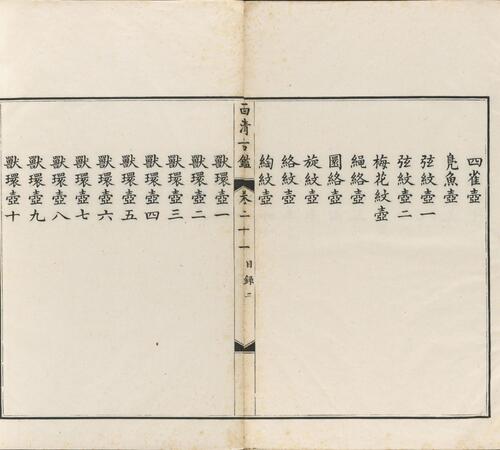 四雀壺
鳧魚壺
弦紋壺一
弦紋壺二
梅花紋壺
繩絡壺
圜絡壺
旋紋壺
絡紋壺
絢紋壺
西清古鑑 卷二十一 目錄 二
獸環壺一
獸環壺二
獸環壺三
獸環壺四
獸環壺五
獸環壺六
獸環壺七
獸環壺八
獸環壺九
獸環壺十